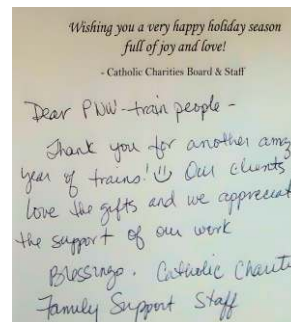 Wishing you a very happy holiday season
full of joy and love!
- Catholic Charities Board & Staff
Dear PNW-train people -
Thank you for another amaz
year of trains! Our clients
love the gifts and we appreciat
the support of our work
Blessings. Catholic Charit
Family Support Staff